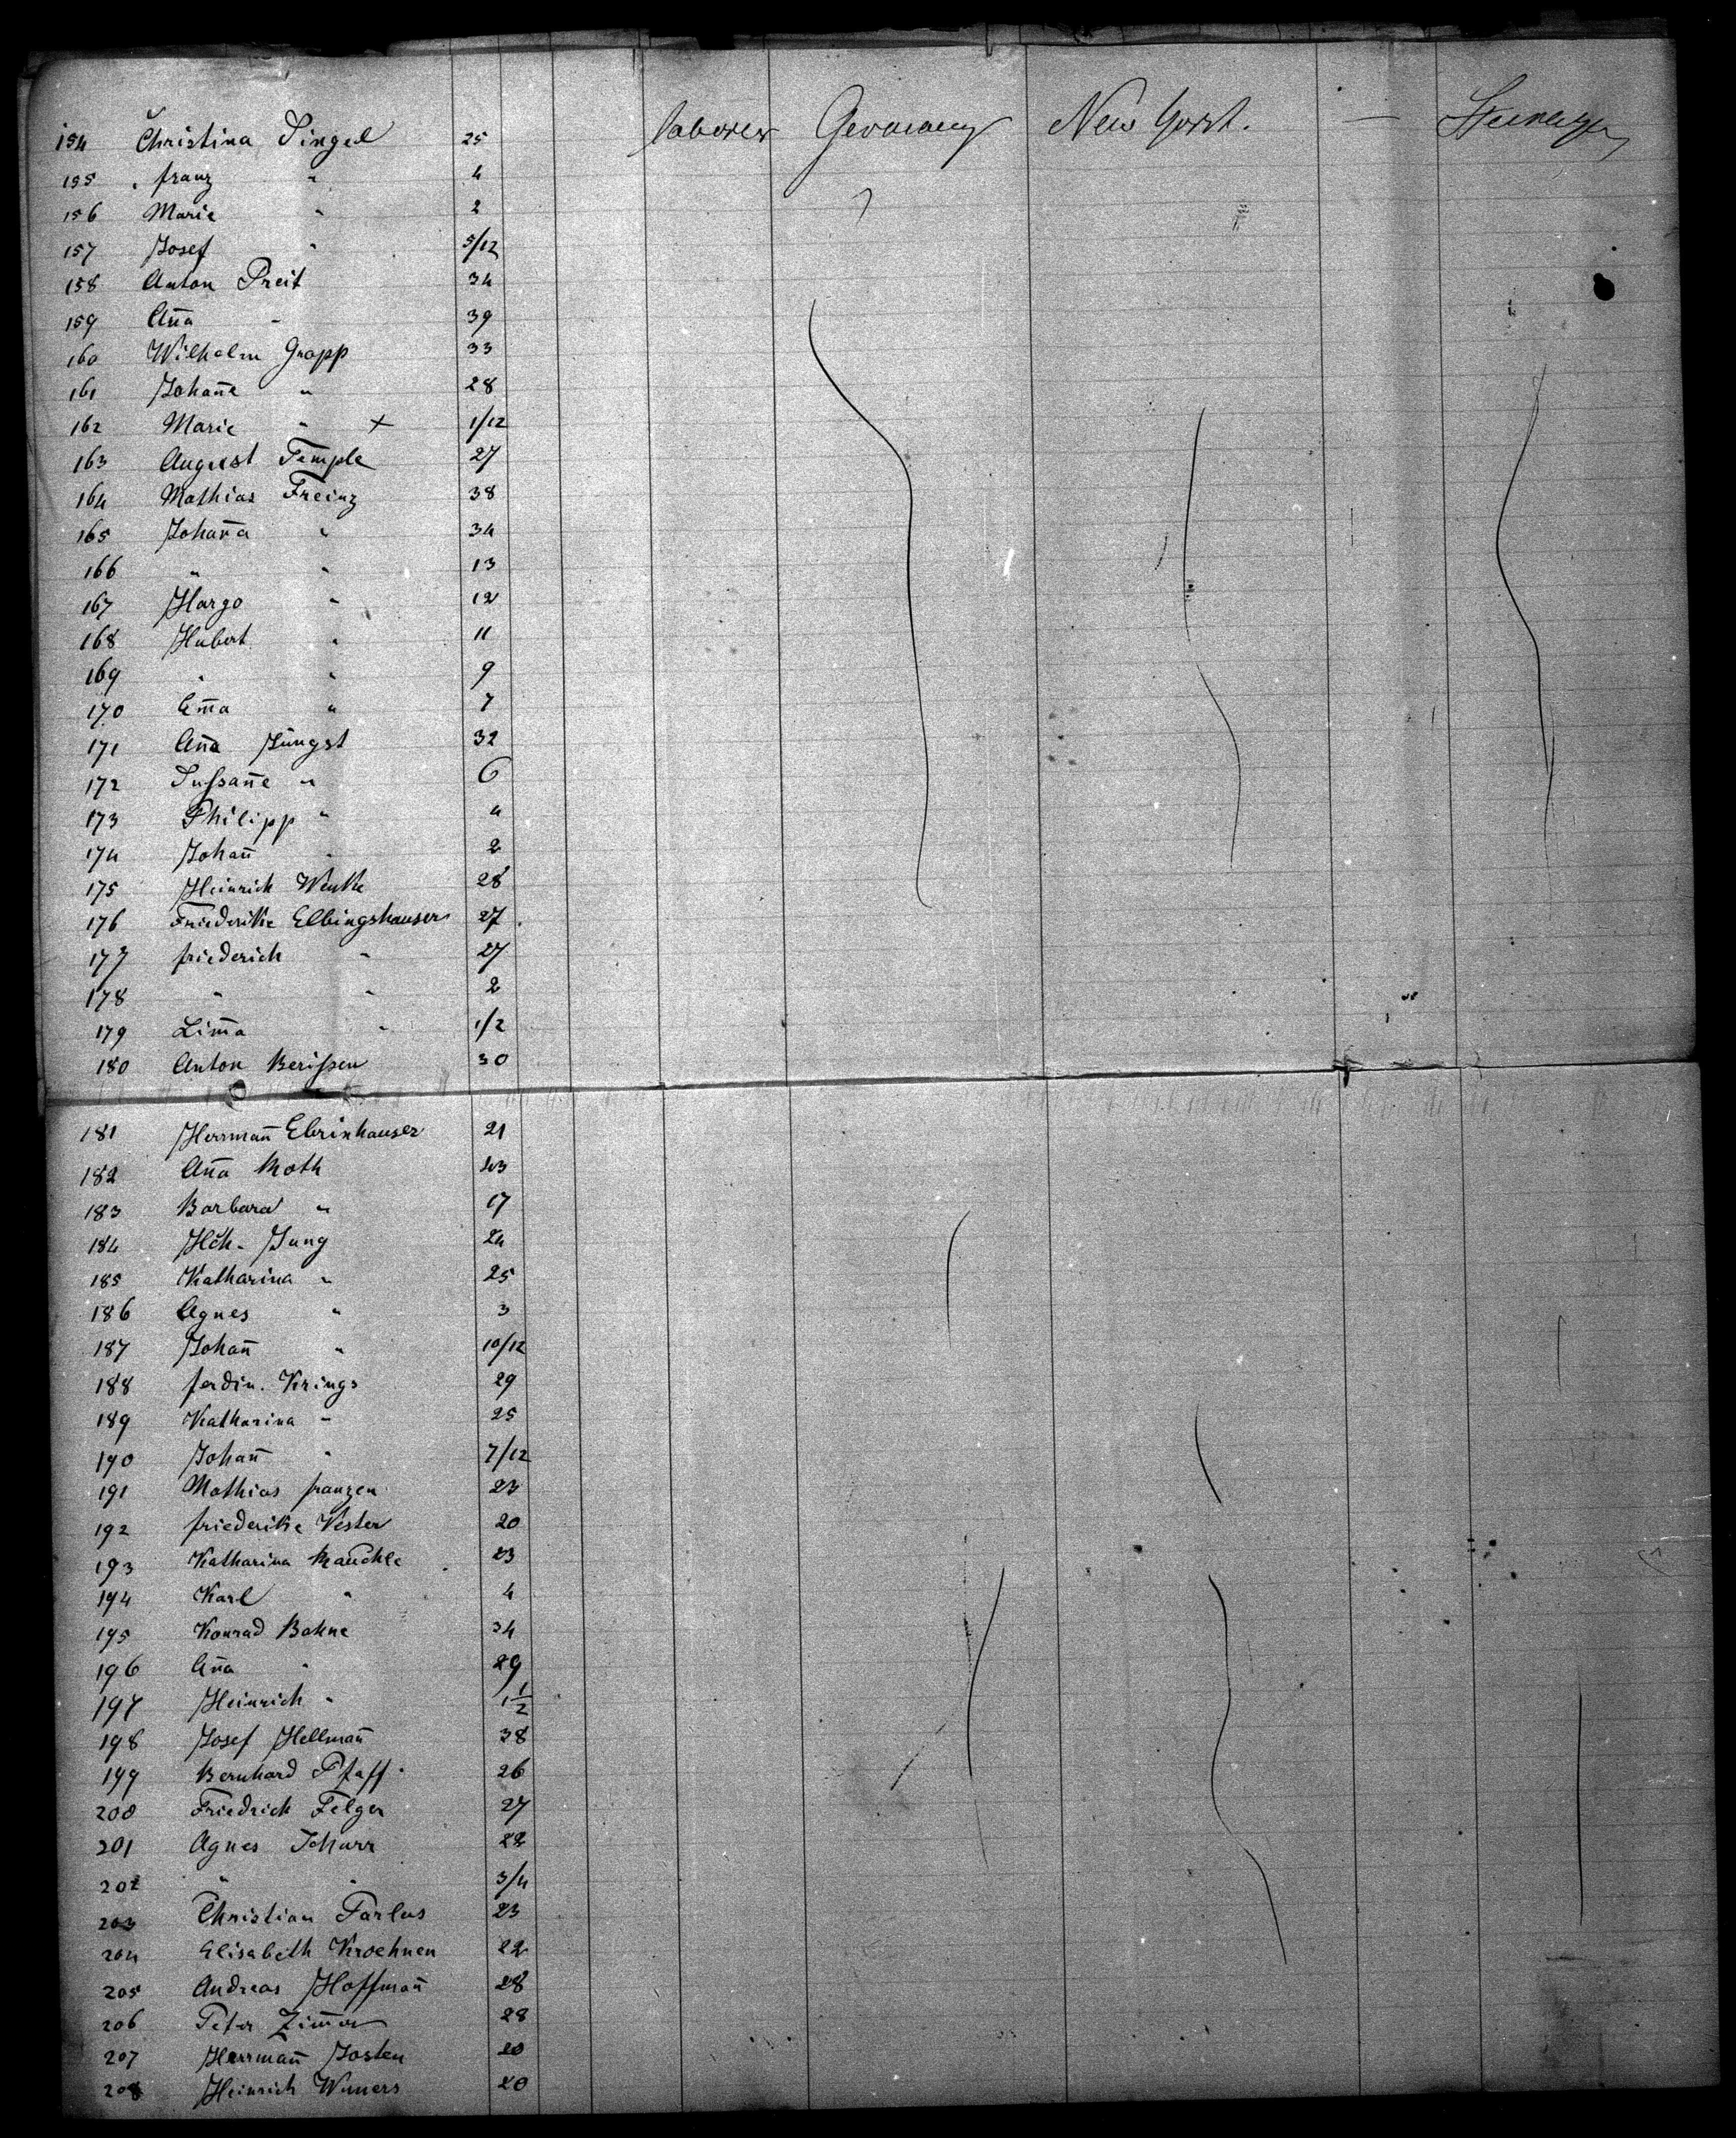 154 Christina Singel 25 laborer Germany New York. — Steerage
155 franz " 4
156 Marie " 2
157 Josef " 5/12
158 Anton Preit 34
159 Am̄a " 39
160 Wilhelm Grapp 33
161 Johan̄e " 28
162 Marie " × 1/12
163 August Temple 27
164 Mathias Freinz 38
165 Johan̄a " 34
166 " " 13
167 Hargo " 12
168 Hubert " 11
169 " " 9
170 Em̄a " 7
171 An̄a Jüngst 32
172 Sußan̄e " 6
173 Philipp " 4
174 Johan̄ " 2
175 Heinrich Wenke 28
176 Friederike Elbingshauser 27
177 friederich " 27
178 " " 2
179 Lim̄a " 1/2
180 Anton Berißen 30
181 Herrman̄ Ebrinhauser 21
182 An̄a Moth 43
183 Barbara " 17
184 Hch. Jung 24
185 Katharina " 25
186 Agnes " 3
187 Johan̄ " 10/12
188 ferdin. Krings 29
189 Katharina " 25
190 Johan̄ " 7/12
191 Mathias franzen 23
192 friederike Vester 20
193 Katharina 23
194 Karl " 4
195 Konrad Bohne 34
196 An̄a " 29
197 Heinrich " 1 1/2
198 Josef Hellman̄ 38
199 Bernhard Pfaff 26
200 Friedrich Felger 27
201 Agnes Schurr 22
202 " " 3/4
203 Christian Farlus 23
204 Elisabeth Kroehnen 22
205 Andreas Hoffman̄ 28
206 Peter Zim̄er 28
207 Herrman̄ Josten 20
208 Heinrich Wimers 20